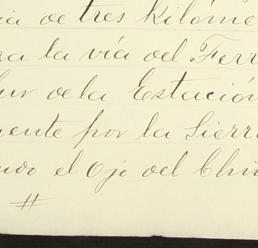 ia de tres Kilóme
ra la vía del Ferr
Sur de la Estación
mente por la Sierra
ndo el Ojo del Chi
#